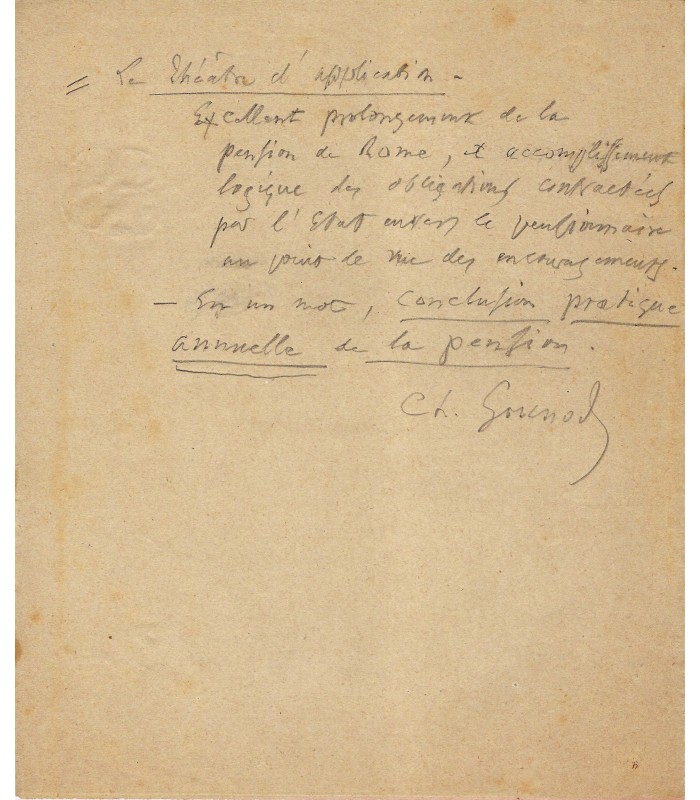 = Le Théâtre d'application -
Excellent prolongement de la
pension de Rome, et accomplissement
logique des obligations contractées
par l'Etat envers le pensionnaire
au point de vue des encouragements.
- En un mot, conclusion pratique
annuelle de la pension.
Ch. Gounod